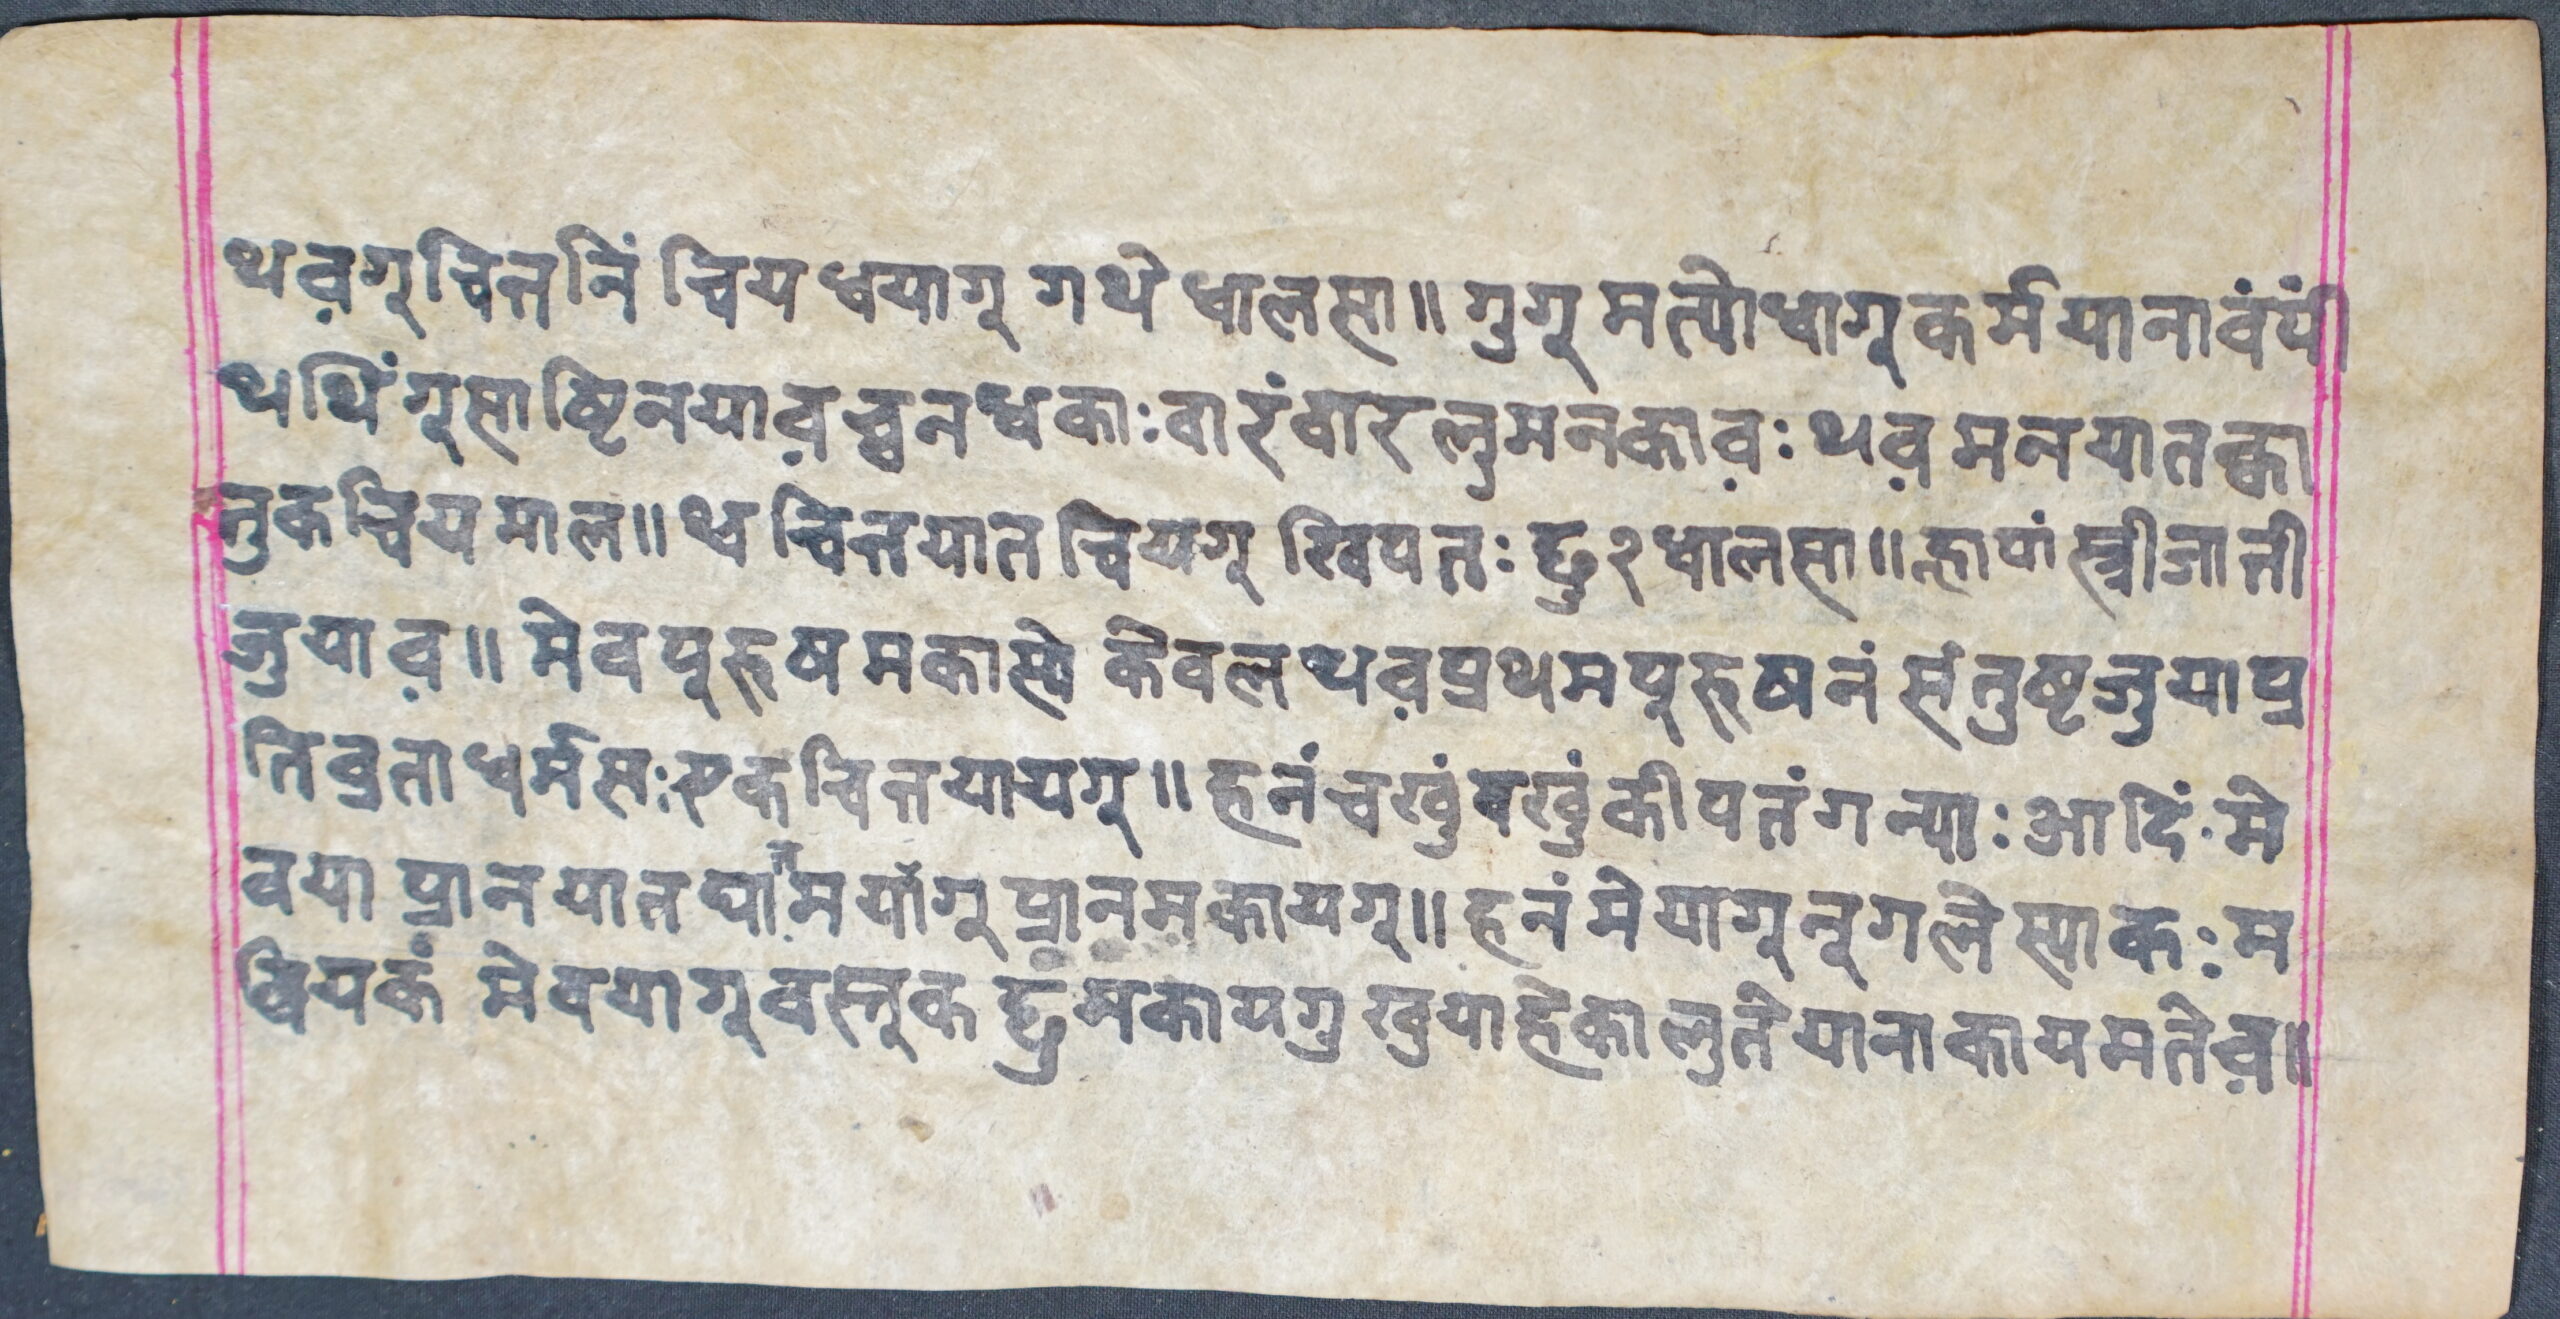 थव़गूचित्तनिं चिय धयागू गथे धालसा॥ गुगू मत्योधागू कर्मयानावंपीं
थथिंगू साष्टिनयाव़ च्वन धकाः वारंवार लुमनकाव़ः थव़ मनयात त्का
तुक चियमाल॥ थ चित्तयात चियगू खिपतः छु२ धालसा॥ ह्लापां स्त्रीजाती
जुयाव़॥ मेव पूरुष मकास्ये केवल थव़ प्रथम पूरुषनं संतुष्ट जुया प्र
तिव्रता धर्मसः एकचित्त यायगू॥ हनं चखुंबखुं कीपतंगन्याः आदिं मे
वया प्रानयात घा मयागू प्रान मकायगू॥ हनं मेयागू नूगले स्याकः म
बियकं मेवयागू वस्तूक छुं मकायगु खुया हेका लुतेयाना काय मतेव़॥